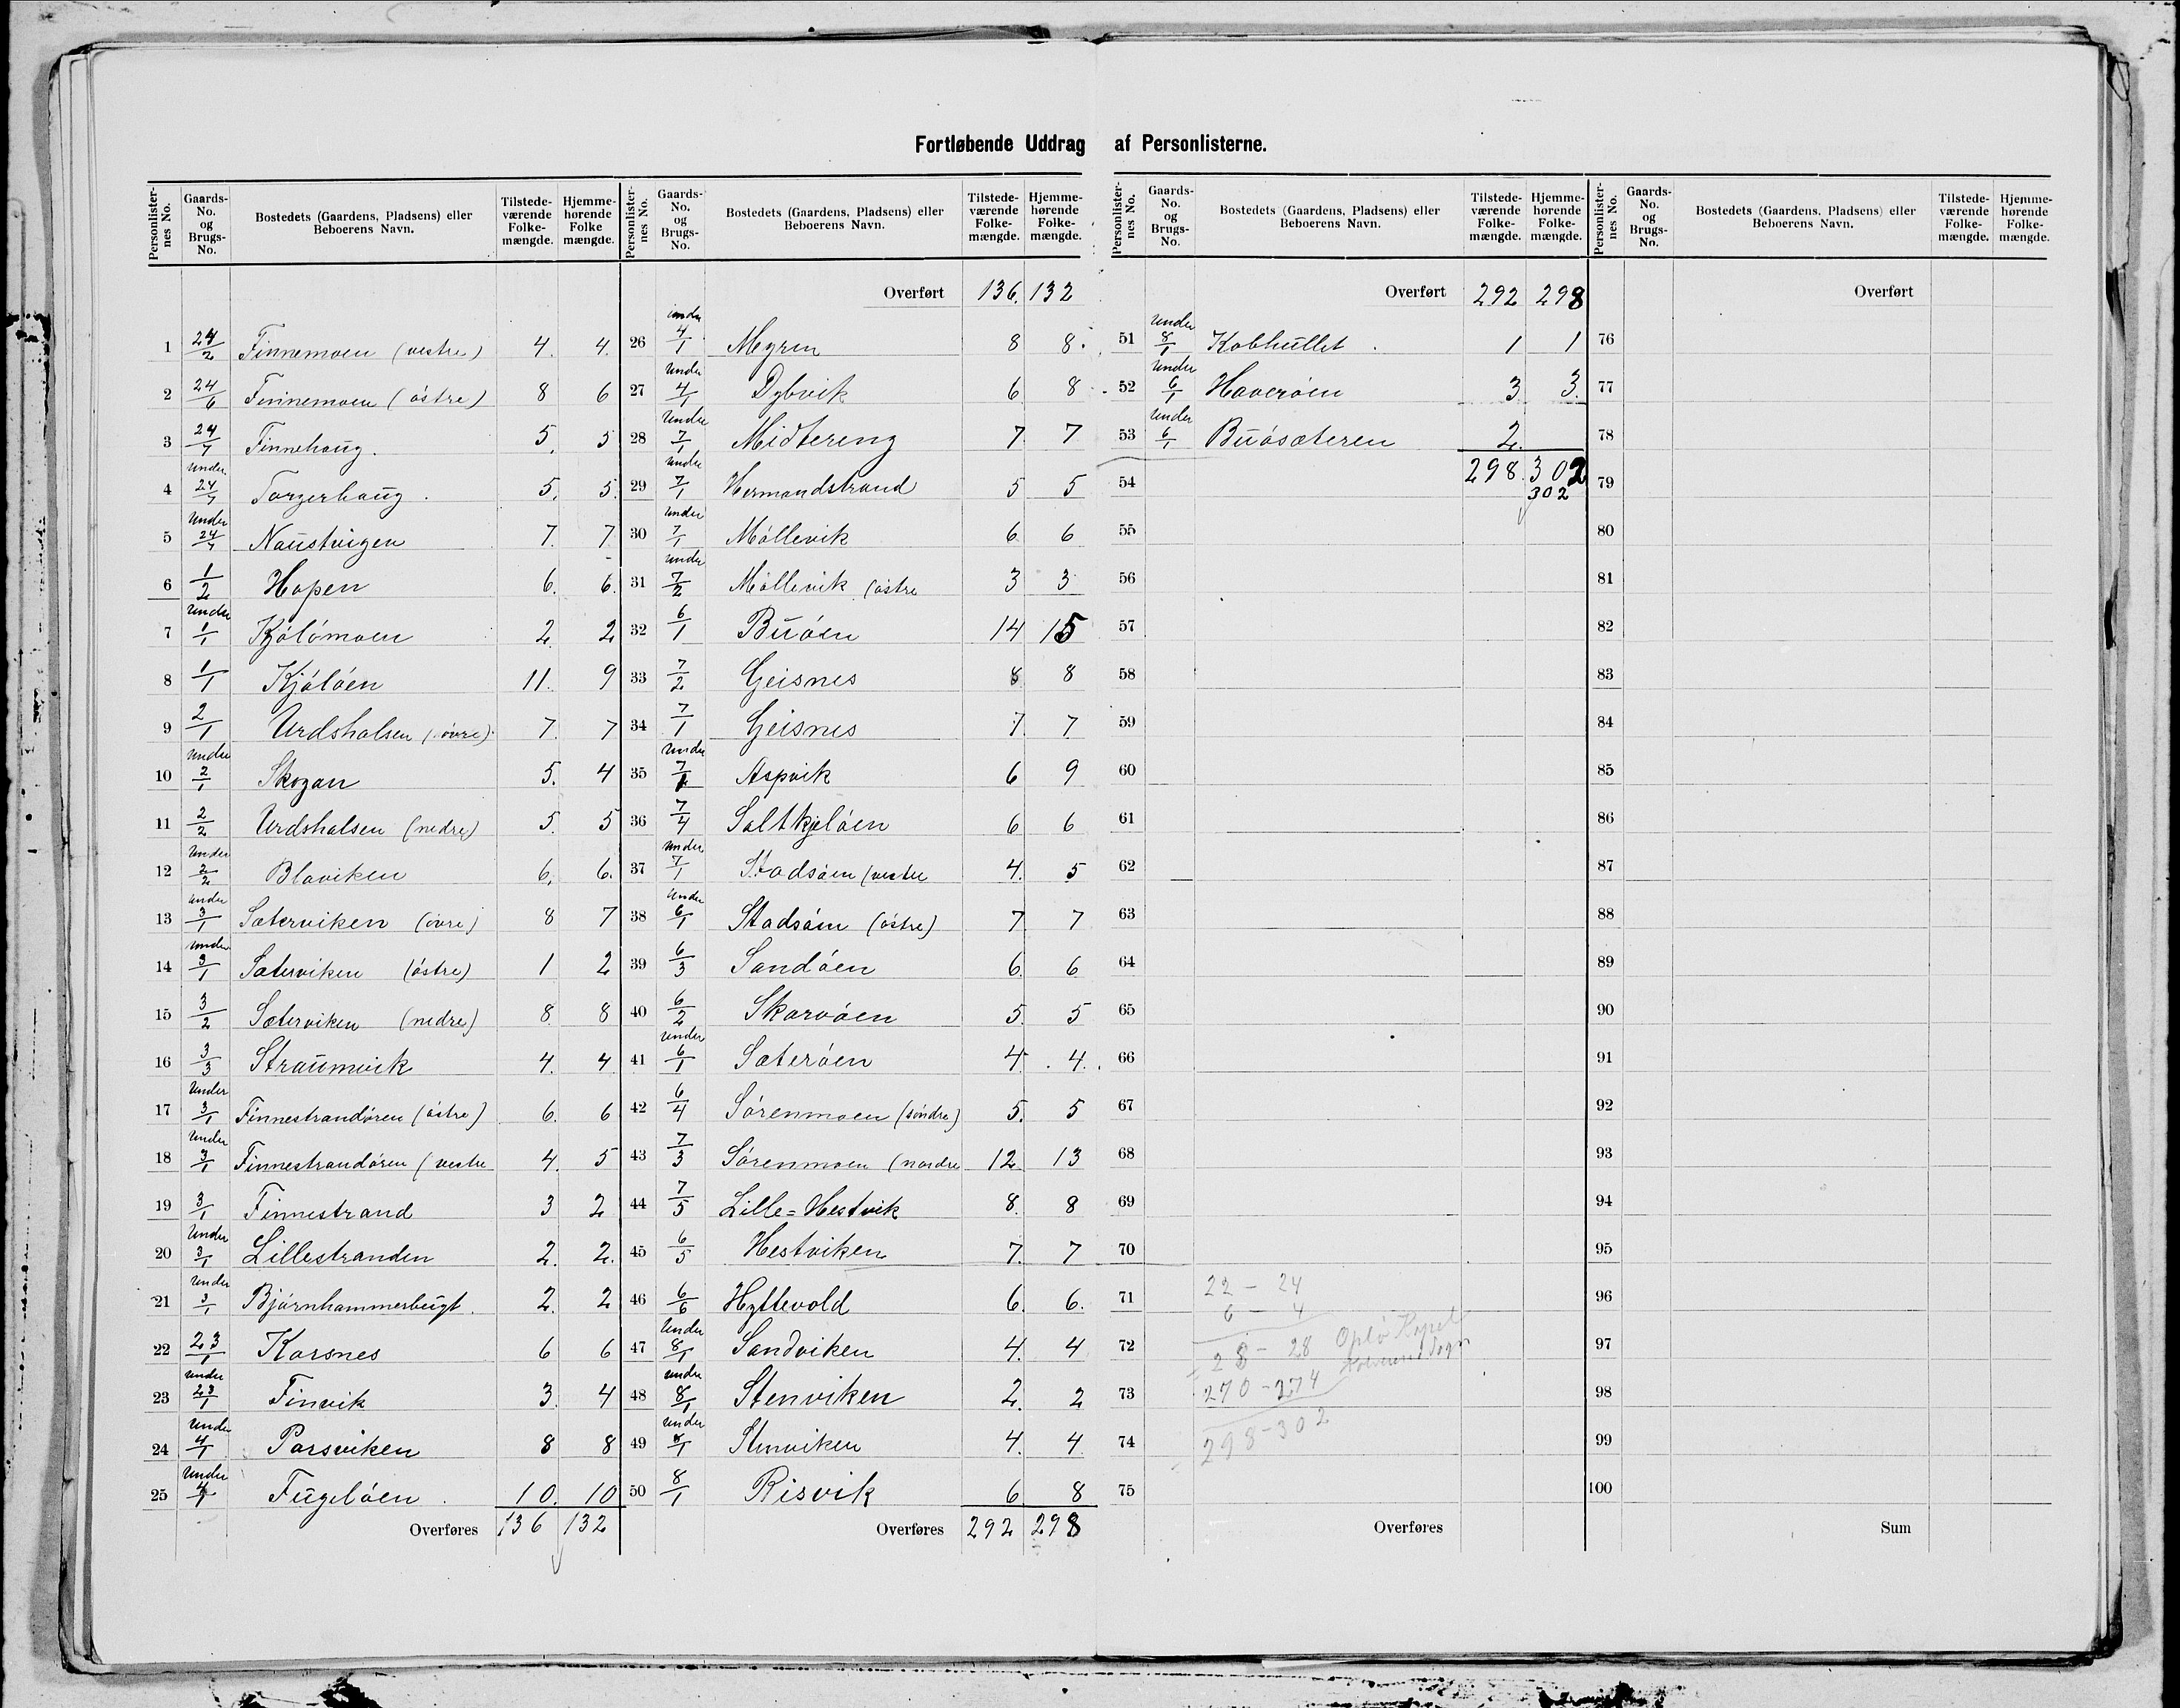 Fortløbende Uddrag af Personlisterne.
Personlisternes No. | Gaards-No. og Brugs-No. | Bostedets (Gaardens, Pladsens) eller Beboerens Navn. | Tilstedeværende Folkemængde. | Hjemmehørende Folkemængde.
1 24/2 Finnemoen (vestre) 4. 4.
2 24/6 Finnemoen (östre) 8 6
3 24/7 Finnehaug. 5. 5
4 under 24/7 Torgerhaug. 5. 5.
5 under 24/7 Naustvigen 7. 7
6 1/2 Hopen 6. 6.
7 under 1/1 Kjölömoen 2. 2
8 1/1 Kjölöen 11. 9
9 2/1 Urdshalsen (övre) 7. 7
10 under 2/1 Skogan 5. 4
11 2/2 Urdshalsen (nedre) 5. 5
12 under 2/2 Blaviken 6. 6.
13 under 3/1 Sæterviken (övre) 8 7
14 under 3/1 Sæterviken (östre) 1 2
15 3/2 Sæterviken (nedre) 8. 8
16 3/3 Straumvik 4. 4
17 under 3/1 Finnestrandören (östre) 6. 6
18 under 3/1 Finnestrandören (vestre 4. 5
19 3/1 Finnestrand 3 2
20 under 3/1 Lillestranden 2. 2.
21 under 3/1 Björnhammerbugt. 2. 2
22 23/1 Korsnes 6 6
23 under 23/1 Finvik 3. 4
24 under 4/1 Parsviken 8 8
25 under 4/1 Fugelöen. 10. 10
Overføres 136 132
Overført 136. 132
26 under 4/1 Myren 8 8.
27 under 4/1 Dybvik 6 8
28 under 7/1 Midtereng 7. 7
29 under 7/1 Hermandstrand 5 5
30 under 7/1 Möllevik 6 6
31 under 7/2 Möllevik (östre 3 3
32 6/1 Buöen 14 15
33 7/2 Geisnes 8 8
34 7/1 Geisnes 7. 7
35 under 7/1 Aspvik 6 9
36 7/4 Saltkjelöen 6 6
37 under 7/1 Stadsöen (vestre 4. 5
38 under 6/1 Stadsöen (östre) 7. 7
39 6/3 Sandöen 6. 6
40 6/2 Skarvöen 5. 5
41 under 6/1 Sæteröen 4. 4.
42 6/4 Sörenmoen (söndre) 5. 5
43 7/3 Sörenmoen (nordre 12. 13
44 7/5 Lille=Hestvik 8. 8
45 6/5 Hestviken 7. 7
46 6/6 Hyttevold 6. 6.
47 under 8/1 Sandviken 4. 4
48 under 8/1 Stenviken 2. 2
49 under 8/1 Stenviken 4. 4
50 8/1 Risvik 6 8
Overføres 292 298
Overført 292 298
51 under 8/1 Kobhullet. 1 1
52 under 6/1 Haveröen 3 3.
53 under 6/1 Buösæteren 2.
54 298. 302
302
55
56
57
58
59
60
61
62
63
64
65
66
67
68
69
70
71 22 - 24
6 - 4
72 28 - 28 Oplö Kapel
73 270 - 274
74 298-302
75
Overføres
Overført
76
77
78
79
80
81
82
83
84
85
86
87
88
89
90
91
92
93
94
95
96
97
98
99
100
Sum